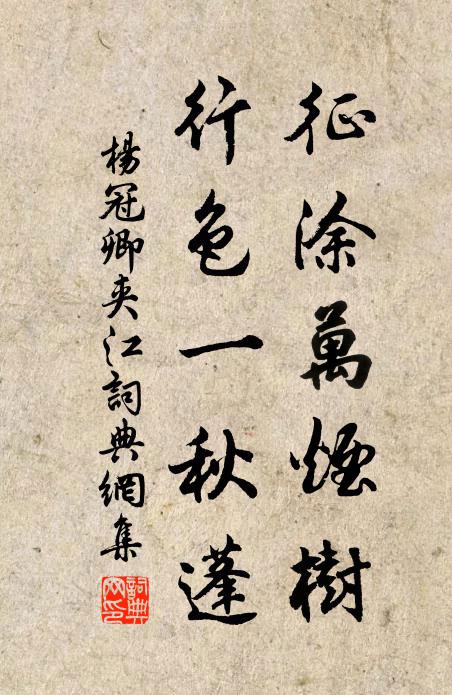 征涂萬煙樹
行色一秋蓬
楊冠卿夾江詞典網集
詞典網印